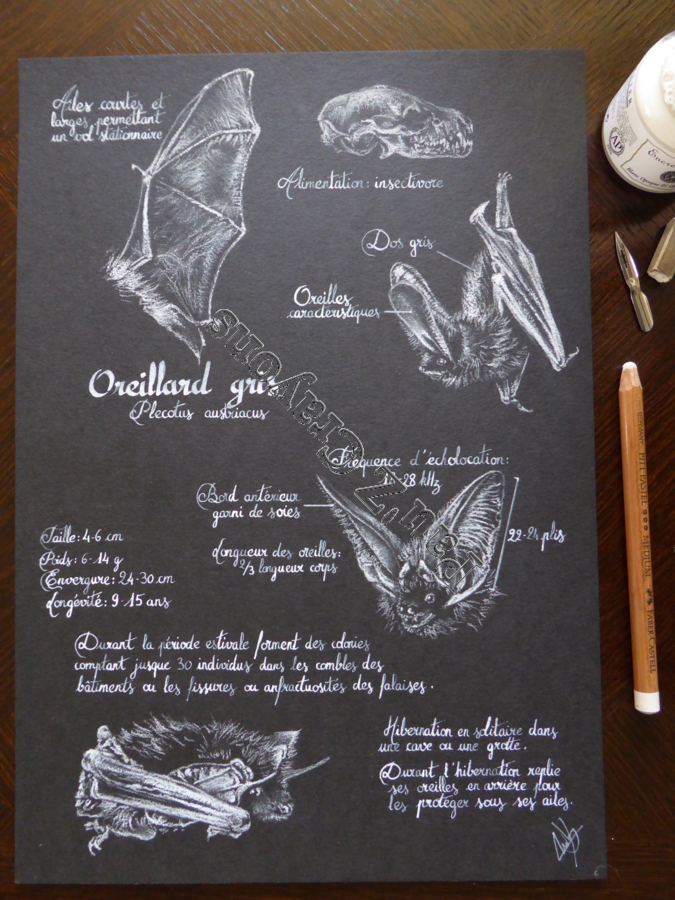 Ailes courtes et
larges permettant
un vol stationnaire
Alimentation: insectivore
Dos gris
Oreilles
caractéristiques
Oreillard gris
Plecotus austriacus
Fréquence d'écholocation:
28 kHz
Bord antérieur
garni de soies
22-24 plis
Longueur des oreilles:
2/3 longueur corps
Taille: 4-6 cm
Poids: 6-14 g
Envergure: 24-30 cm
Longévité: 9-15 ans
Durant la période estivale forment des colonies
comptant jusque 30 individus dans les combles des
bâtiments ou les fissures ou anfractuosités des falaises.
Hibernation en solitaire dans
une cave ou une grotte.
Durant l'hibernation replie
ses oreilles en arrière pour
les protéger sous ses ailes.
Encre
AP
PITT PASTEL MEDIUM FABER-CASTELL